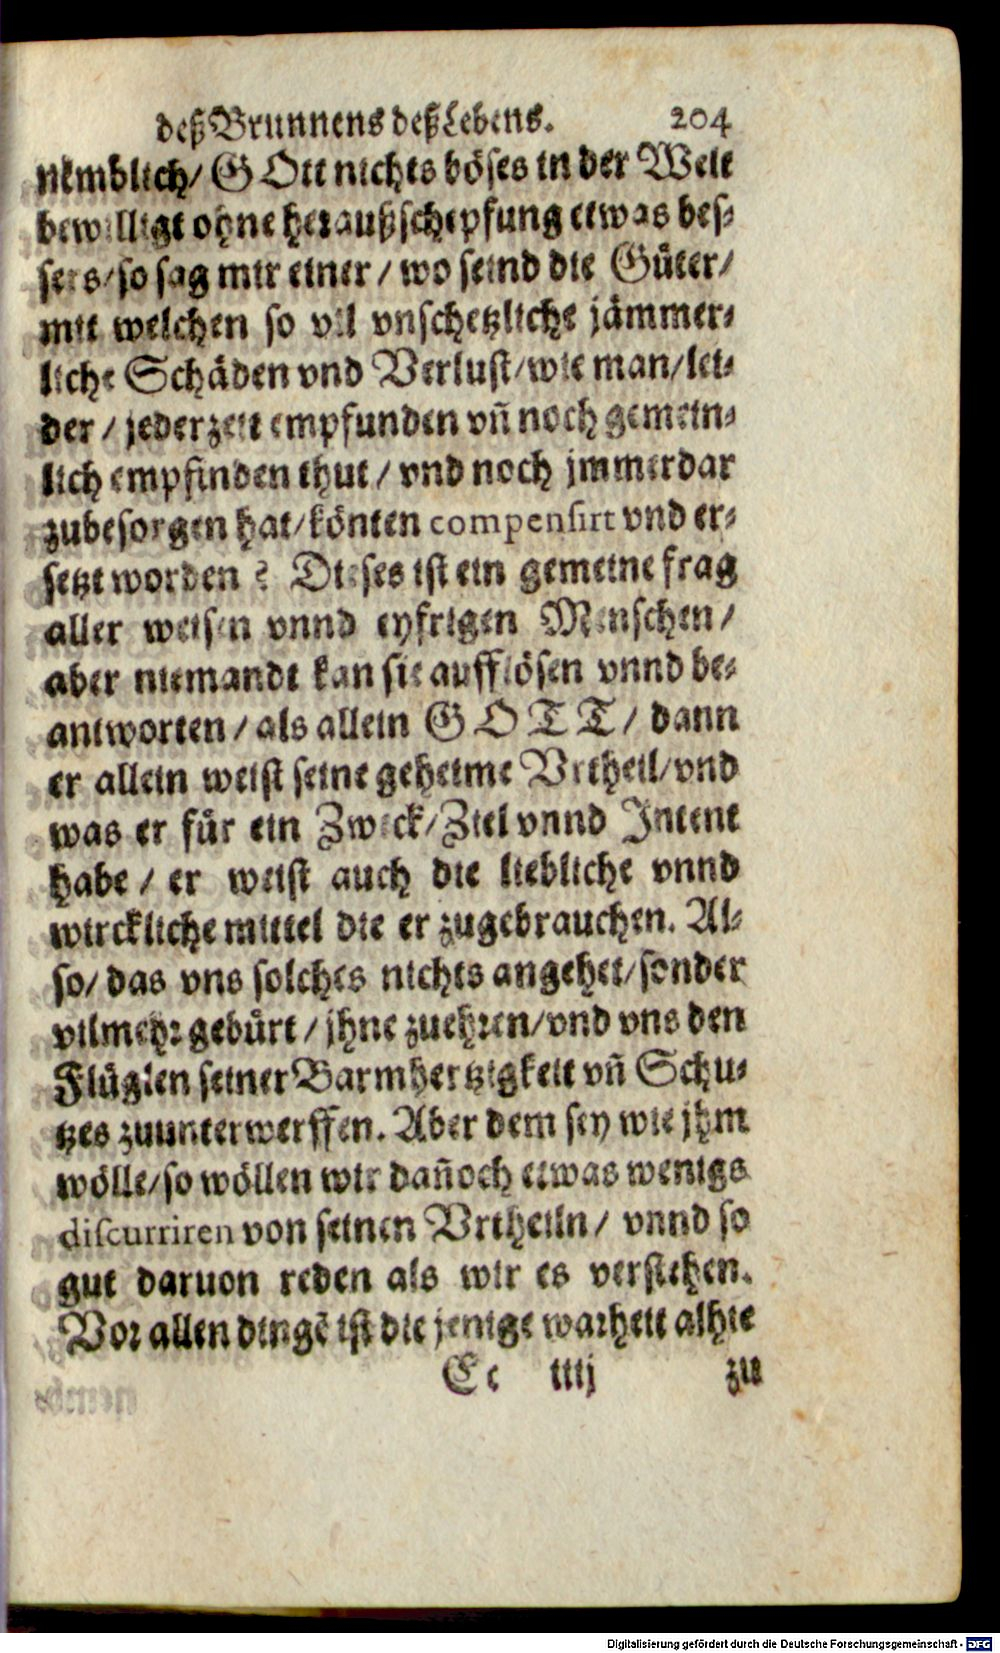 deß Brunnens deß Lebens. 204
nemblich/ GOtt nichts böses in der Welt
bewilligt ohne heraußschepfung etwas bes⸗
sers/ so sag mir einer/ wo seind die Güter/
mit welchen so vil vnschetzliche jämmer⸗
liche Schäden vnd Verlust/ wie man/ lei⸗
der/ jederzeit empfunden vñ noch gemein⸗
lich empfinden thut/ vnd noch jmmerdar
zubesorgen hat/ könten compensirt vnd er⸗
setzt worden? Dieses ist ein gemeine frag
aller weisen vnnd eyfrigen Menschen/
aber niemandt kan sie aufflösen vnnd be⸗
antworten/ als allein GOTT/ dann
er allein weist seine geheime Vrtheil/ vnd
was er für ein Zweck/ Ziel vnnd Intent
habe/ er weist auch die liebliche vnnd
wirckliche mittel die er zugebrauchen. Al⸗
so/ das vns solches nichts angehet/ sonder
vilmehr gebürt/ jhne zuehren/ vnd vns den
Flüglen seiner Barmhertzigkeit vñ Schu⸗
tzes zuunterwerffen. Aber dem sey wie jhm
wölle/ so wöllen wir dañoch etwas wenigs
discurriren von seinen Vrtheiln/ vnnd so
gut daruon reden als wir es verstehen.
Vor allen dingē ist die jenige warheit alhie
Ee iiij zu
Digitalisierung gefördert durch die Deutsche Forschungsgemeinschaft - DFG